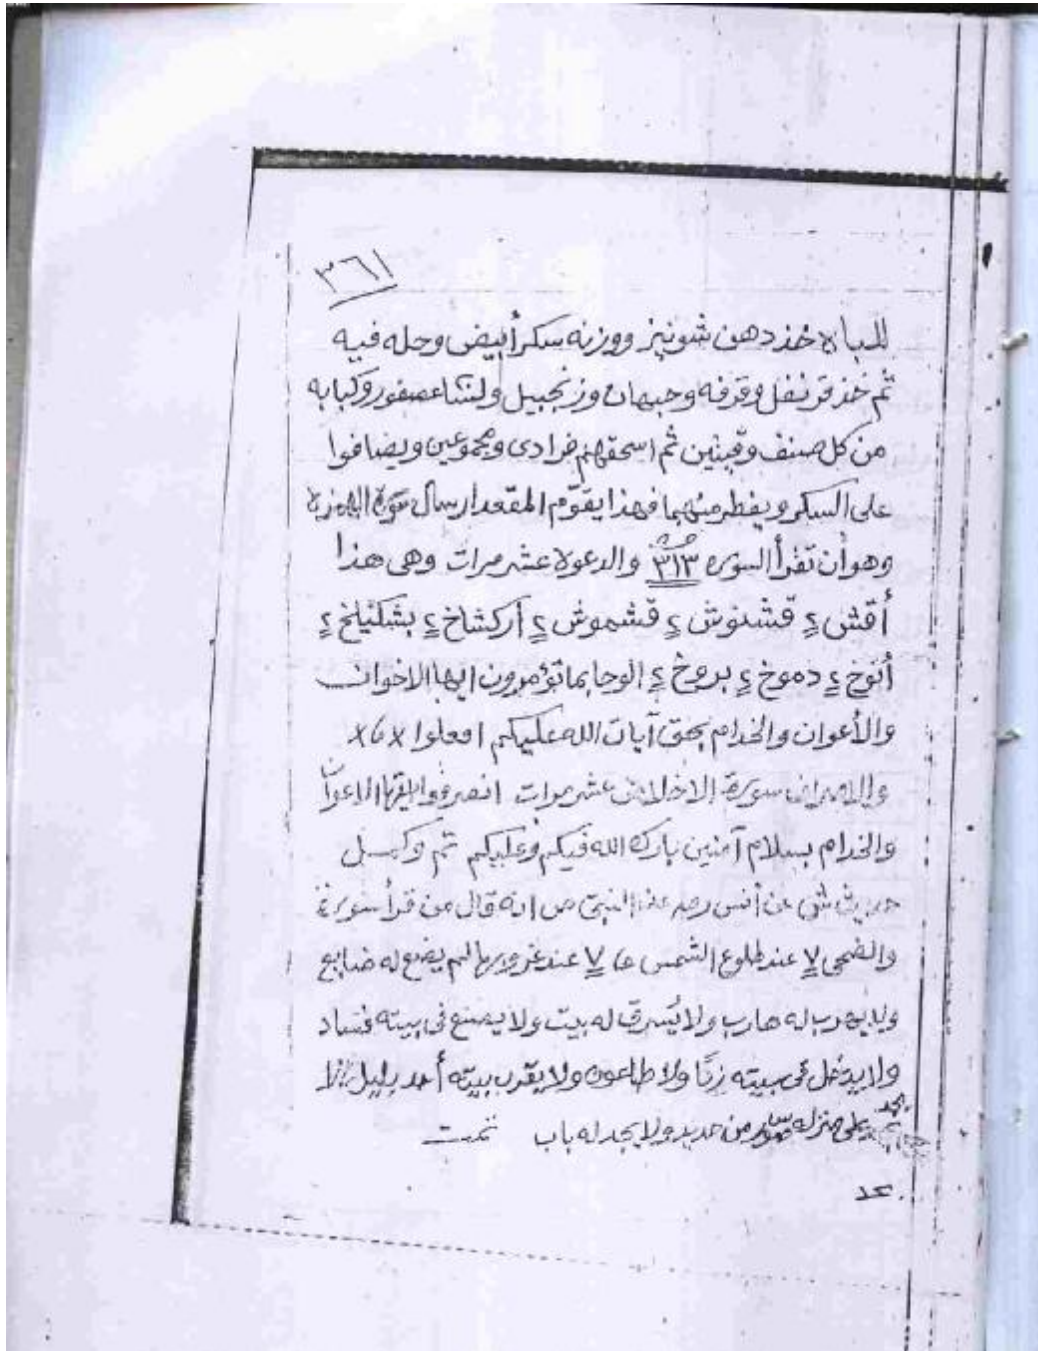 ٣٦١
للباه خذ دهن شونيز ووزنه سكر أبيض وحله فيه
ثم خذ قرنفل وقرفه وحبهان وزنجبيل ولسان عصفور وكبابه
من كل صنف وقيتين ثم اسحقهم فرادى ومجموعين ويضافوا
على السكر ويفطر منهما فهذا يقوّم المقعد ارسال سورة الهمزة
وهو أن تقرأ السوره ٣١٣ والدعوة عشر مرات وهى هذا
أقش ٢ قشنوش ٢ قشموش ٢ أركشاخ ٢ بشكنيلخ ٢
أنوخ ٢ دموخ ٢ بروخ ٢ الوحا بما تؤمرون ايها الاخوان
والأعوان والخدام بحق آيات الله عليكم افعلوا
سورة الاخلاص عشر مرات انصرفوا ايها الاعوان
والخدام بسلام آمنين بارك الله فيكم وعليكم تم وكمل
عن أنس النبى ص انه قال من قرأ سورة
والضحى ٧ عند طلوع الشمس ٧ عند غروبها لم يضع له ضايع
ولا يهرب له هارب ولا يُسرق له بيت ولا فى بيته فساد
ولا يدخل فى بيته زنًا ولا طاعون ولا يقرب بيته أحد بليل الا
يجد على منزله سور من حديد ولا يجد له باب تمت